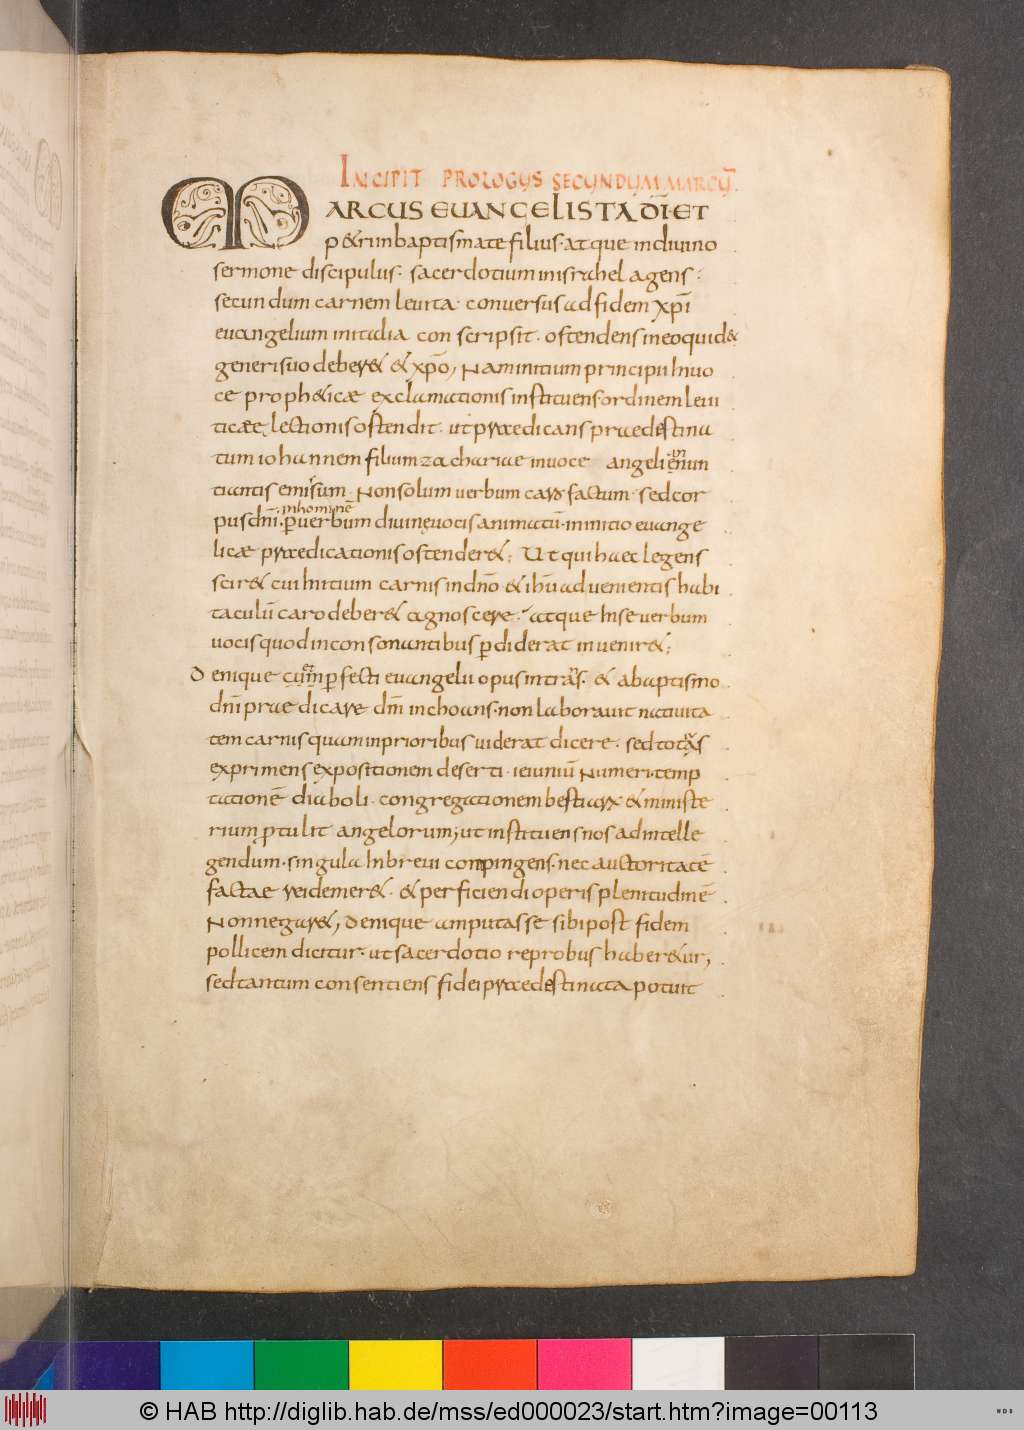 INCIPIT PROLOGUS SECUNDUM MARCŪ.
MARCUS EUANGELISTA DĪ ET
p&ri in baptismate filius · atque in diuino
sermone discipulus · sacerdotium in israhel agens :
secundum carnem leuita · conuersus ad fidem xp̄i
euangelium in italia conscripsit · ostendens in eo quid &
generi suo deber& & xp̄o, Nam initium principii In uo
ce proph&icae exclamationis instituens · ordinem leui
ticae lectionis ostendit · ut praedicans praedestina
tum iohannem filium zachariae in uoce angeli enun
tiantis emisum Non solum uerbum caro factum · sed cor
in homine
pus dn̄i · p uerbum diuinę uocis animatū · in initio euange
licae praedicationis ostender& ; Ut qui haec legens
scir& cui Initium carnis in dn̄o & ih̄u aduenientis habi
taculū caro deber& agnoscere · atque In se uerbum
uocis quod in consonantibus pdiderat inuenir& ;
Denique cum pfecti euangelii opus intrans · & a baptismo
dn̄i praedicare dm̄ inchoans · non laborauit natiuita
tem carnis quam in prioribus uiderat dicere · sed totus
exprimens expositionem deserti · ieiuniū Numeri · temp
tationē diaboli · congregationem bestiarū & ministe
rium ptulit angelorum, ut instituens nos ad intelle
gendum · singula In breui conpingens · nec auctoritatē
factae rei demer& · & perficiendi operis plenitudinē
Non negar&, denique amputasse sibi post fidem
pollicem dicitur · ut sacerdotio reprobus haber&ur,
sed tantum consentiens fidei praedestinata potuit
© HAB http://diglib.hab.de/mss/ed000023/start.htm?image=00113